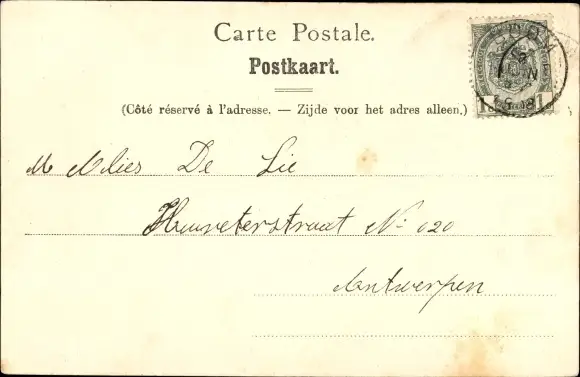 Carte Postale.
Postkaart.
(Côté réservé à l'adresse. — Zijde voor het adres alleen.)
M Mlies De Lie
Huuveterstraat No 120
Antwerpen